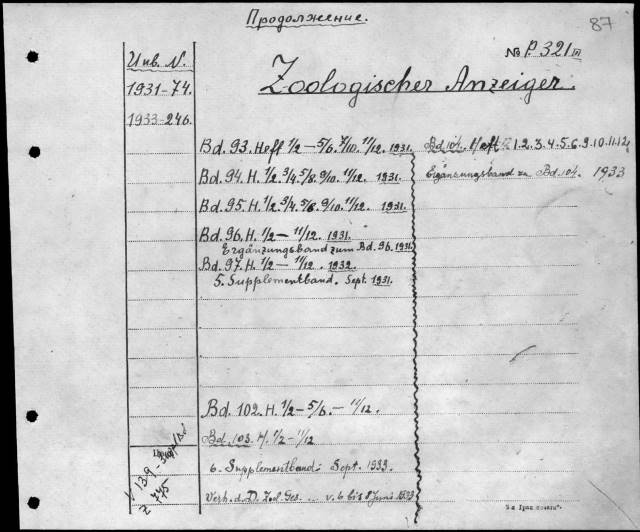 Продолжение.
87
№ P. 321
Инв. N.
Zoologischer Anzeiger.
1931-74.
1933-246.
Bd. 93. Heft 1/2 – 5/6. 7/10. 11/12. 1931.
Bd. 94. H. 1/2. 3/4. 5/8. 9/10. 11/12. 1931.
Bd. 95. H. 1/2. 3/4. 5/6. 9/10. 11/12. 1931.
Bd. 96. H. 1/2 – 11/12. 1931.
Ergänzungsband zum Bd. 96. 1931.
Bd. 97. H. 1/2 – 11/12. 1932.
5. Supplementband. Sept. 1931.
Bd. 102. H. 1/2 – 5/6. – 11/12.
Bd. 103. H. 1/2 – 11/12
6. Supplementband. Sept. 1933.
Verh. d. D. Zool. Ges. v. 6 bis 8 Juni 1933
Bd. 104. Heft 1. 2. 3. 4. 5. 6. 9. 10. 11. 12
Ergänzungsband zu Bd. 104. 1933
139
775